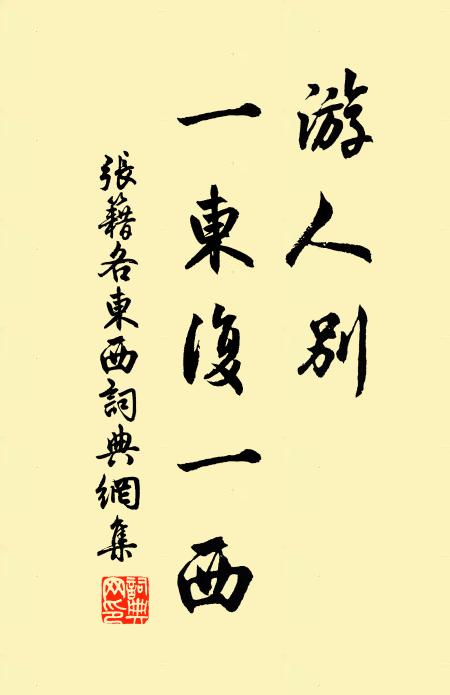 游人别
一東復一西
張籍各東西詞典網集
詞典网印